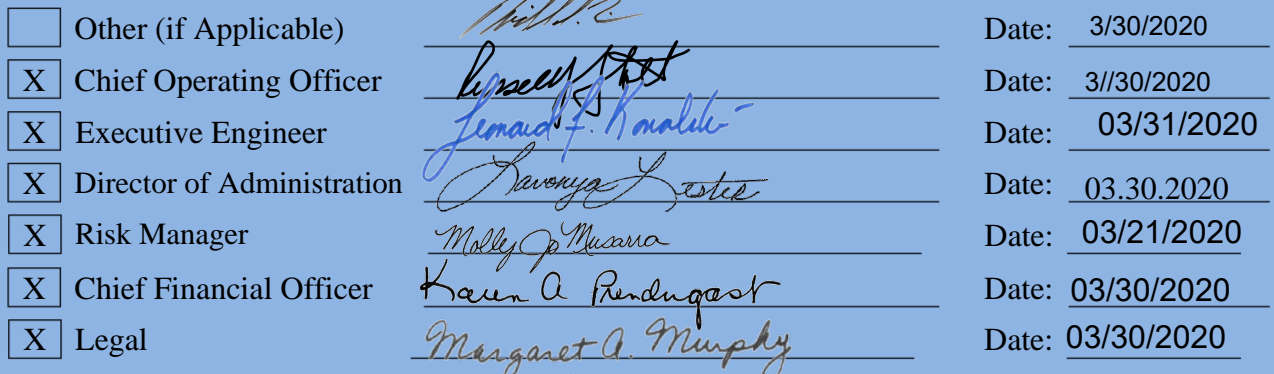 Other (if Applicable) Date: 3/30/2020
X Chief Operating Officer Date: 3//30/2020
X Executive Engineer Leonard F. Kowalski Date: 03/31/2020
X Director of Administration Lavonya Lester Date: 03.30.2020
X Risk Manager Molly Jo Musarra Date: 03/21/2020
X Chief Financial Officer Karen A Prendergast Date: 03/30/2020
X Legal Margaret A. Murphy Date: 03/30/2020